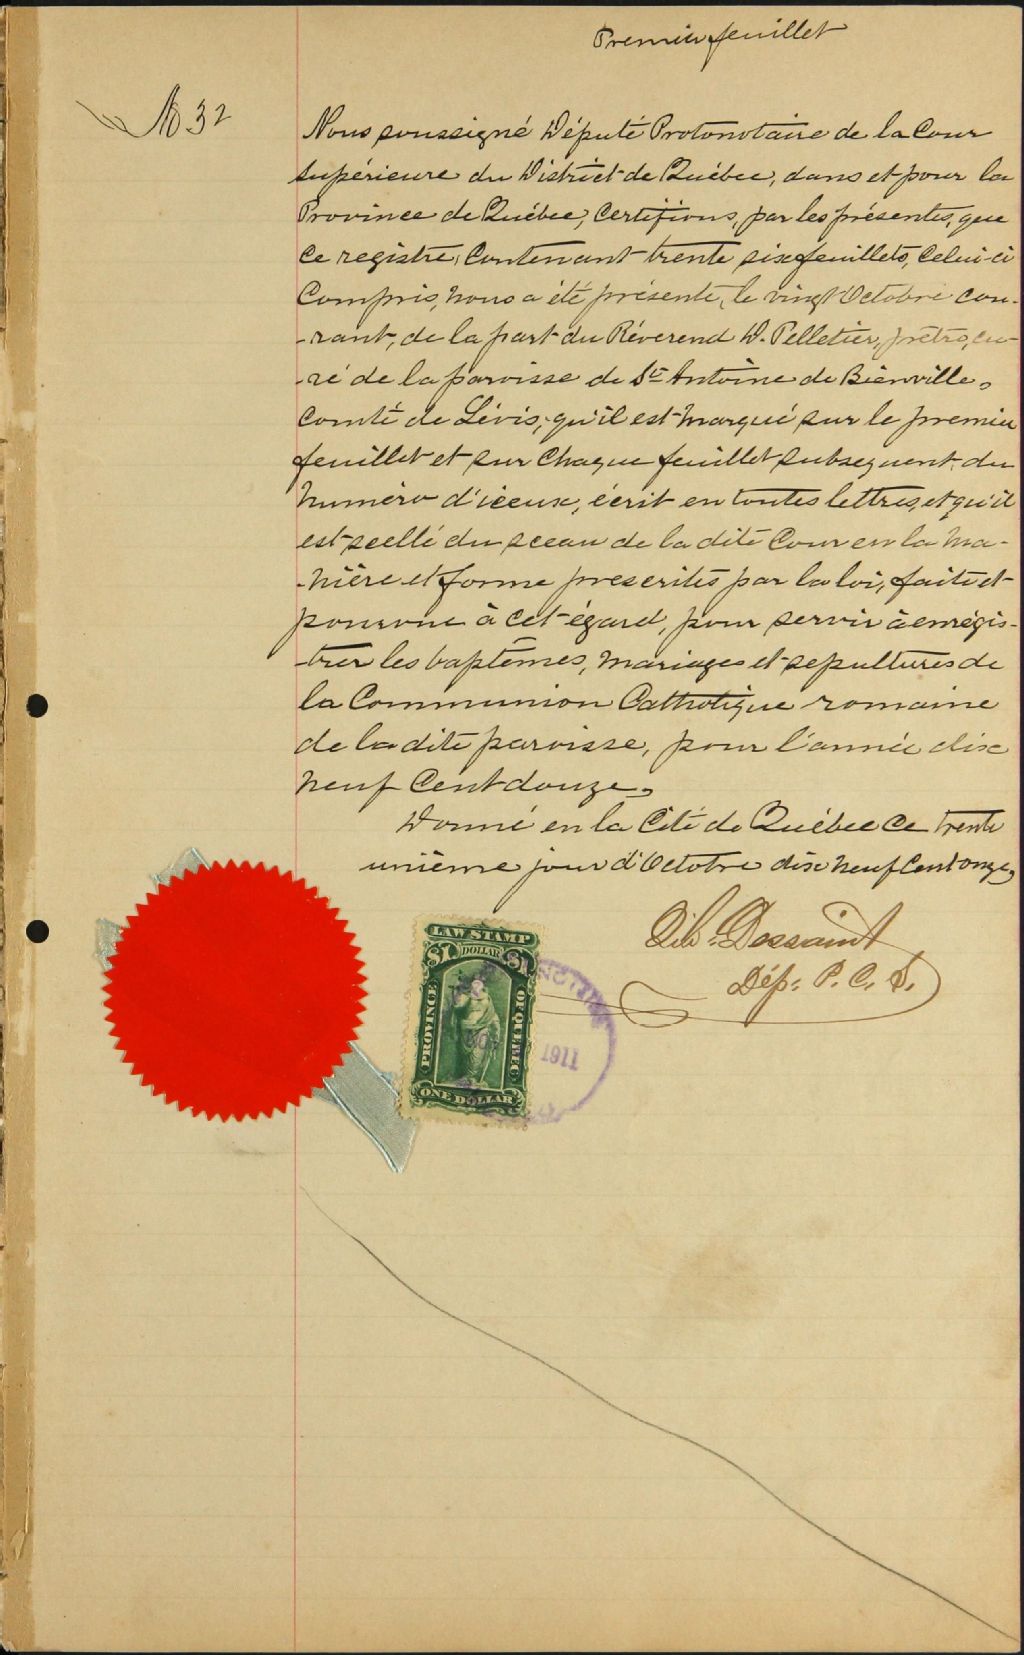 Premier feuillet
No 32
Nous soussigné Député Protonotaire de la Cour
supérieure du District de Québec, dans et pour la
Province de Québec, Certifions, par les présentes, que
ce registre, contenant trente six feuillets, celui-ci
compris, nous a été présenté, le vingt Octobre cou-
-rant, de la part du Révérend D. Pelletier, prêtre, cu-
-ré de la paroisse de St Antoine de Bienville,
Comté de Lévis; qu'il est marqué sur le premier
feuillet et sur chaque feuillet subsequent du
numéro d'iceux, écrit en toutes lettres, et qu'il
est scellé du sceau de la dite Cour en la ma-
-nière et forme prescrites par la loi, faite et
pourvue à cet égard, pour servir à enrégis-
-trer les baptêmes, mariages et sepultures de
la Communion Catholique romaine
de la dite paroisse, pour l'année dix
neuf cent douze,
Donné en la Cité de Québec ce trente
unième jour d'Octobre dix neuf cent onze,
Dessaint
Dép. P. C. S.
LAW STAMP
$1 DOLLAR $1
PROVINCE OF QUEBEC
ONE DOLLAR
1911